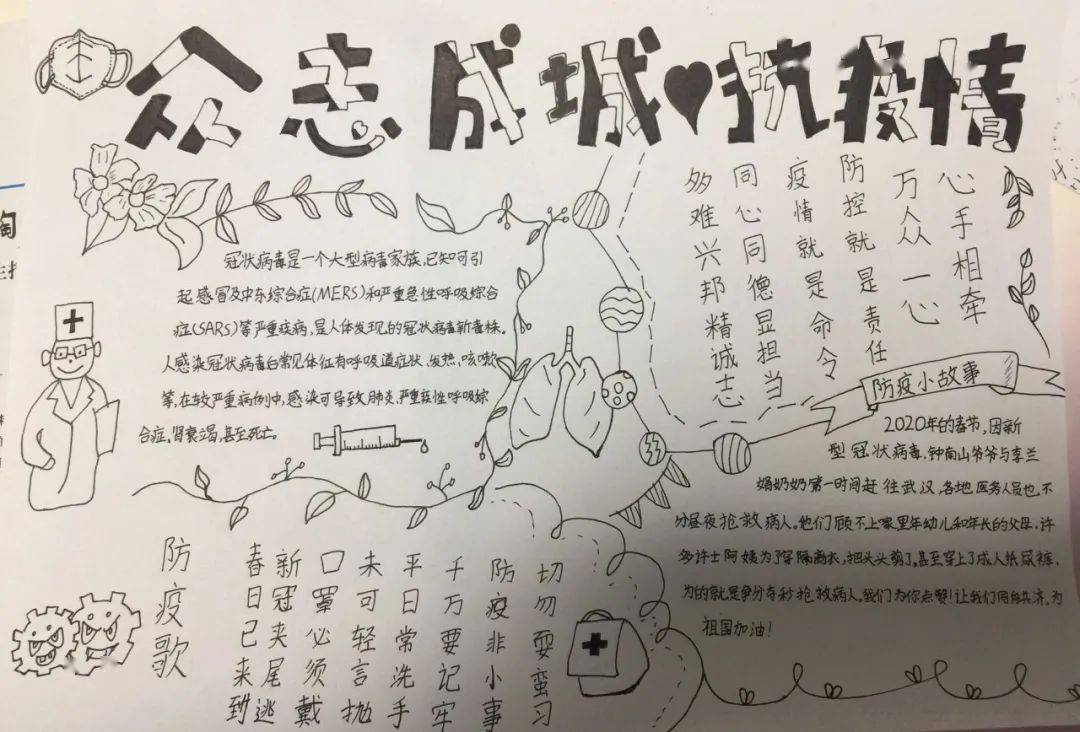 众志成城抗疫情
心手相牵
万众一心
防控就是责任
疫情就是命令
同心同德显担当
多难兴邦精诚志
冠状病毒是一个大型病毒家族,已知可引
起感冒及中东综合症(MERS)和严重急性呼吸综合
症(SARS)等严重疾病,是人体发现的冠状病毒新毒株。
人感染冠状病毒的常见体征有呼吸道症状、发热、咳嗽
等,在较严重病例中,感染可导致肺炎、严重疾性呼吸综
合症,肾衰竭,甚至死亡。
防疫小故事
2020年的春节,因新
型冠状病毒,钟南山爷爷与李兰
娟奶奶第一时间赶往武汉,各地医务人员也不
分昼夜抢救病人。他们顾不上家里年幼儿和年长的父母,许
多许士阿姨为了穿隔离衣,把头头剪了,甚至穿上了成人纸尿裤,
为的就是争分夺秒抢救病人。我们为你点赞!让我们同舟共济,为
祖国加油!
防疫歌
春日已来到
新冠夹尾逃
口罩必须戴
未可轻言抛
平日常洗手
千万要记牢
防疫非小事
切勿耍蛮习